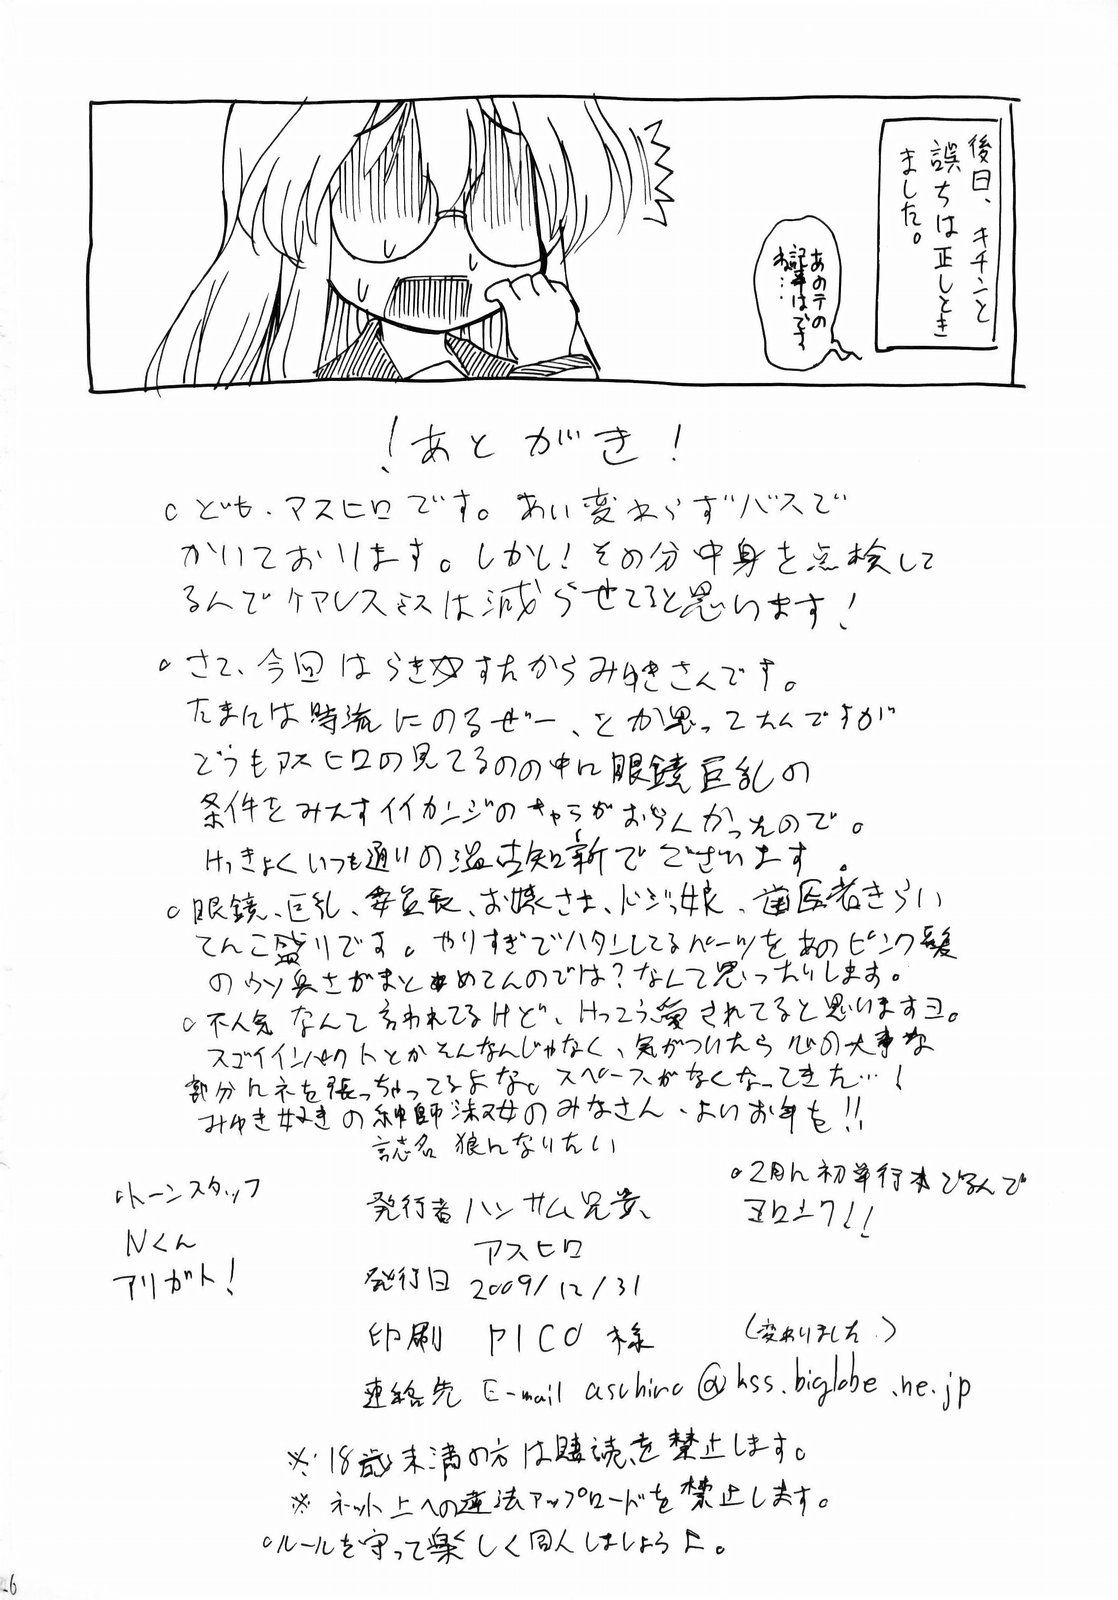 後日、キチンと
誤ちは正しとき
ました。
あのテの
記事はですね…
!あとがき!
○ども、アスヒロです。あい変わらずバスで
かいております。しかし!その分中身を点検して
るんでケアレスミスは減らせてると思います!
○さて、今回はらき☆すたからみゆきさんです。
たまには時流にのるぜー、とか思ってたんですが
どうもアスヒロの見てるのの中に眼鏡巨乳の
条件をみたすイイカンジのキャラがおらんかったので。
けっきょくいつも通りの温古知新でございます。
○眼鏡、巨乳、委員長、お嬢さま、ドジっ娘、歯医者きらい
てんこ盛りです。やりすぎでハタンしてるパーツをあのピンク髪
のウソ臭さがまとめてんのでは?なんて思ったりします。
○不人気なんて言われてるけど、けっこう愛されてると思いますヨ。
スゴイインパクトとかそんなんじゃなく、気がついたら心の大事な
部分に根を張っちゃってるよな。スペースがなくなってきた…!
みゆき好きの紳師淑女のみなさん、よいお年を!!
誌名 狼になりたい
○トーンスタッフ
Nくん
アリガト!
発行者 ハンサム兄貴、
アスヒロ
○2月に初単行本でるんで
ヨロシク!!
発行日 2009/12/31
印刷 PICO様
(変わりました。)
連絡先 E-mail asuhiro@kss.biglobe.ne.jp
※18歳未満の方は購読を禁止します。
※ネット上への違法アップロードを禁止します。
○ルールを守って楽しく同人しましょうよ。